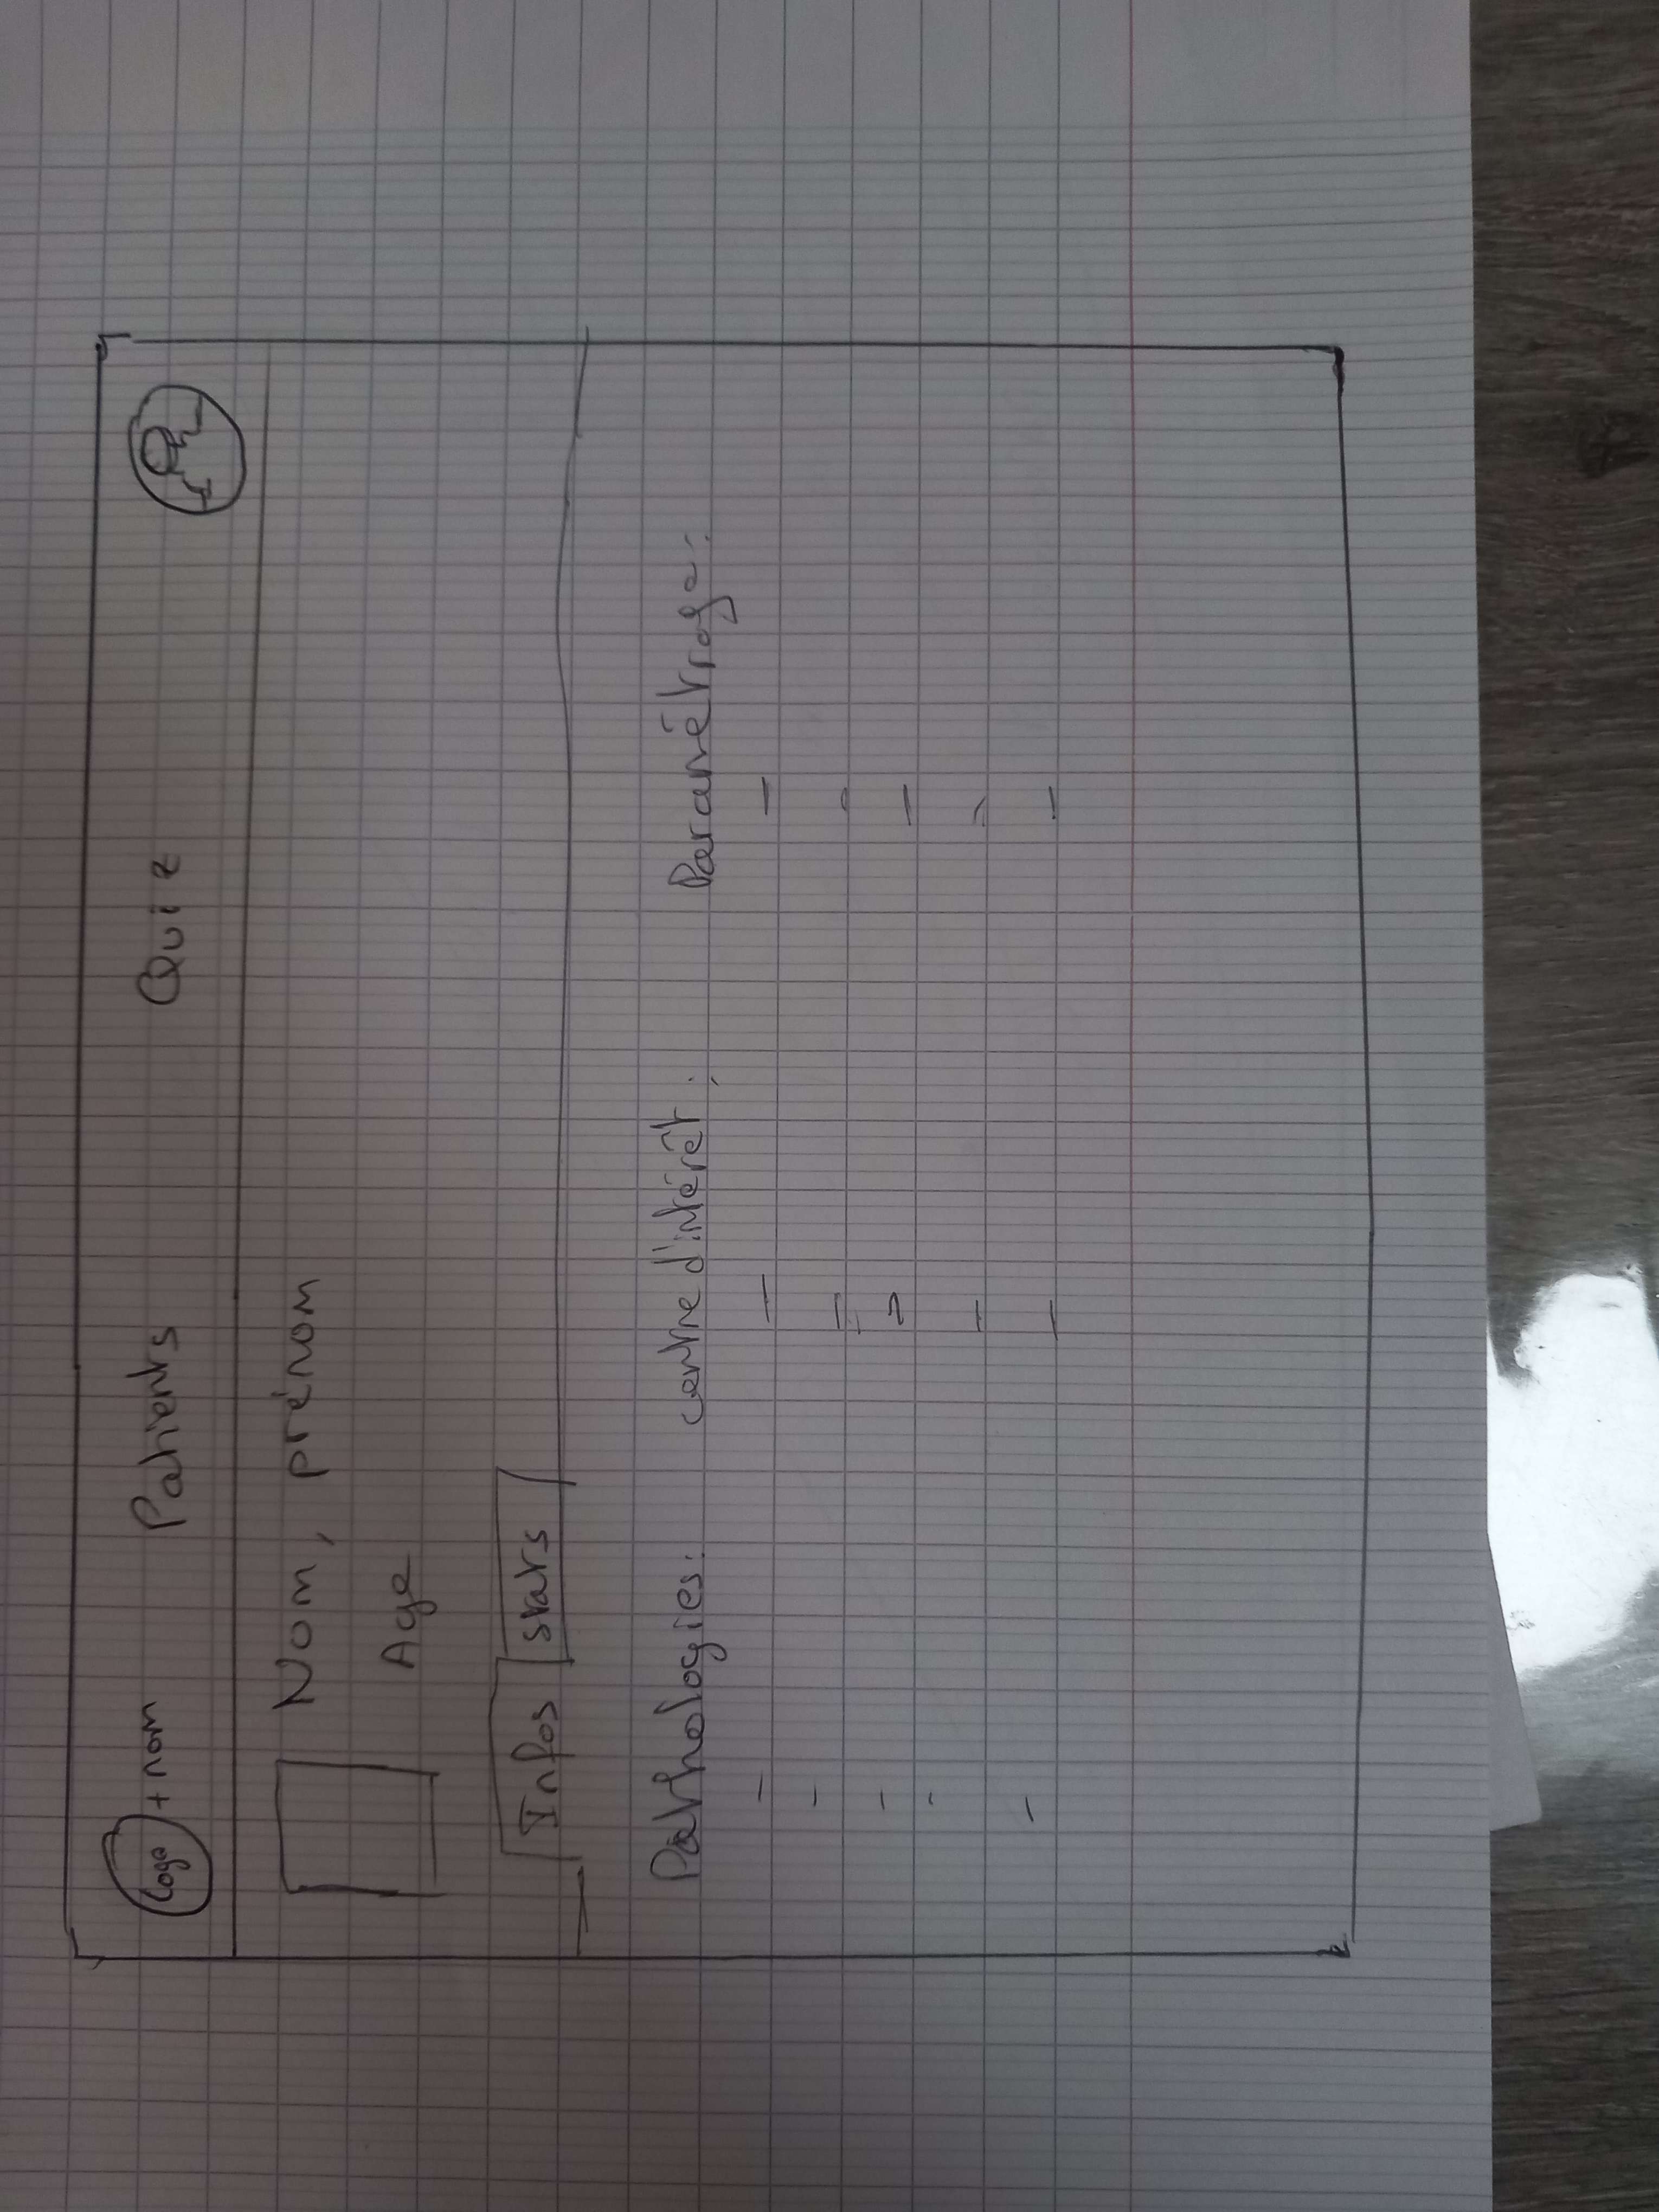 logo + nom Patients Quiz
Nom, prénom
Age
Infos stats
Pathologies: centre d'intérêt: Paramétrage:
- - -
- - -
- - -
- - -
- - -